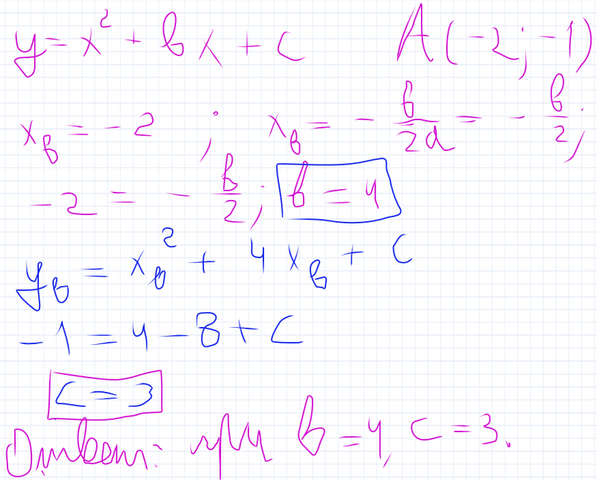 y = x² + bx + c A(-2; -1)
x_в = -2 ; x_в = - b/2a = - b/2;
-2 = - b/2; b = 4
y_в = x_в² + 4x_в + c
-1 = 4 - 8 + c
c = 3
Ответ: при b = 4, c = 3.